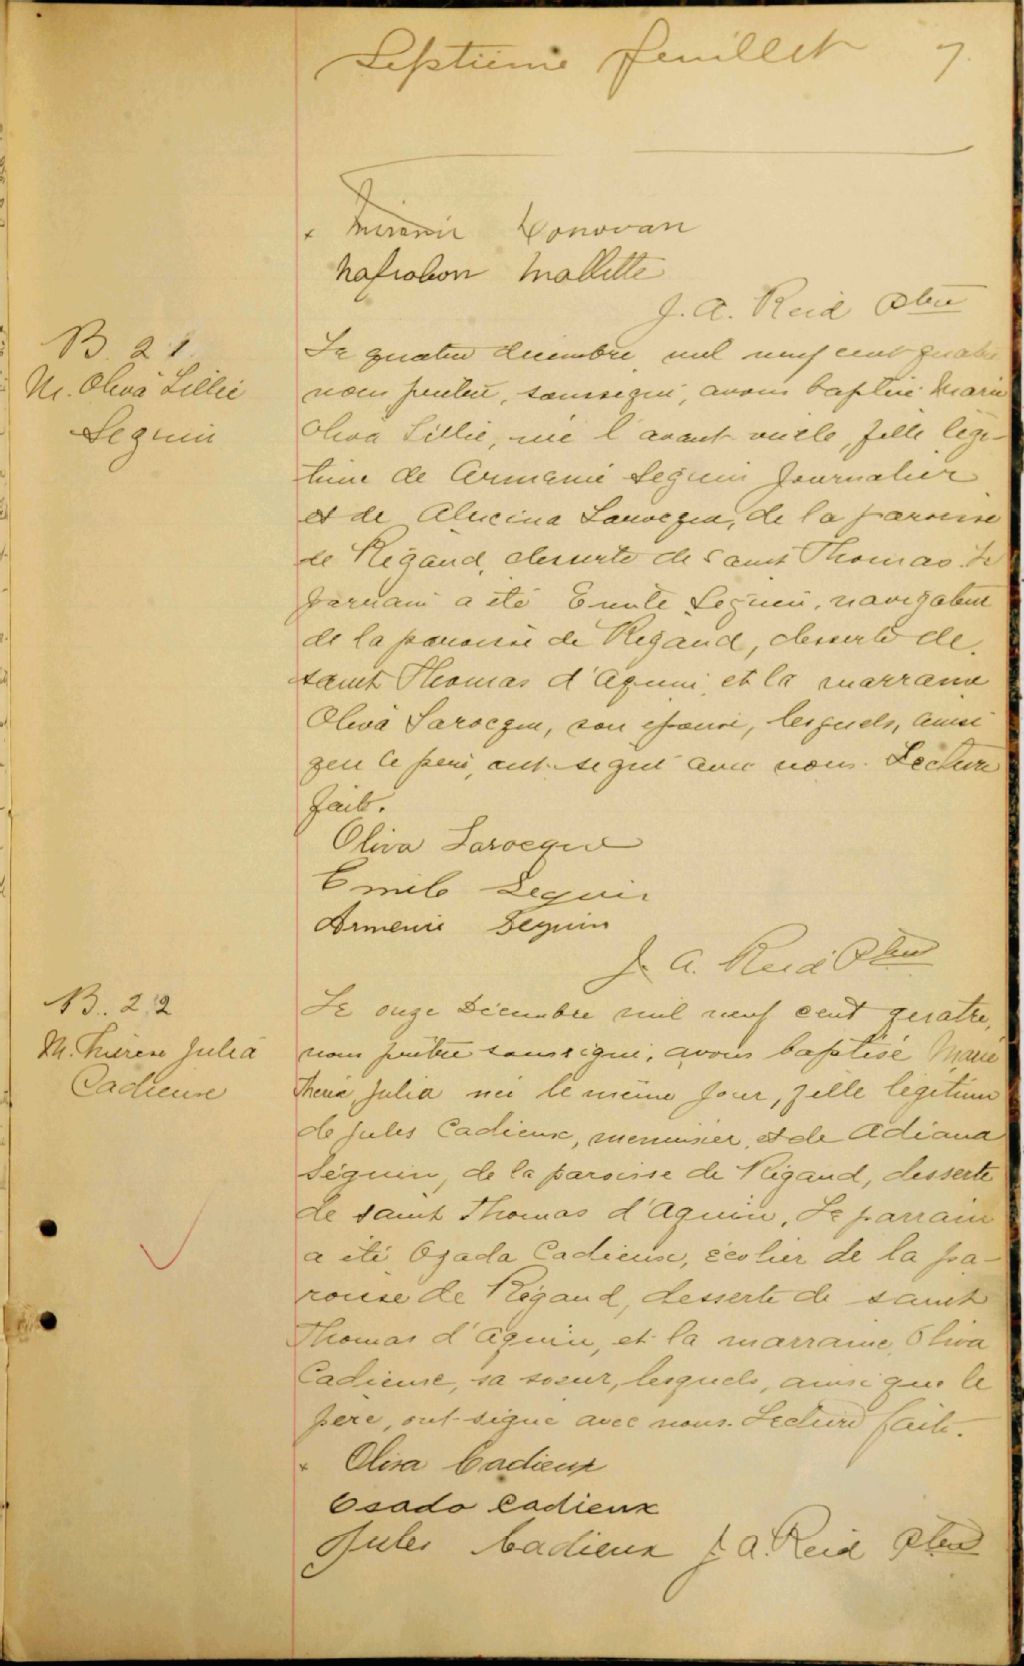 Septième feuillet 7.
x Donovan
Napoléon Mallette
J. A. Reid Ptre
B. 21.
M. Oliva Lillie
Seguin
Le quatre décembre mil neuf cent quatre
nous prêtre, soussigné, avons baptisé Marie
Oliva Lillie, née l'avant veille, fille légi-
time de Armenie Seguin journalier
et de Larocque, de la paroisse
de Rigaud, desserte de saint Thomas. Le
parrain a été Emile Seguin, navigateur
de la paroisse de Rigaud, desserte de
saint Thomas d'Aquin, et la marraine
Oliva Larocque, son épouse, lesquels, ainsi
que le père, ont signé avec nous. Lecture
faite.
Oliva Larocque
Emile Seguin
Armenie Seguin
J. A. Reid Ptre
B. 22
M. Thérèse Julia
Cadieux
Le onze Décembre mil neuf cent quatre,
nous prêtre soussigné, avons baptisé Marie
Thérèse Julia née le même jour, fille légitime
de Jules Cadieux, menuisier, et de Adiana
Séguin, de la paroisse de Rigaud, desserte
de saint Thomas d'Aquin. Le parrain
a été Ozada Cadieux, écolier de la pa-
roisse de Rigaud, desserte de saint
Thomas d'Aquin, et la marraine, Oliva
Cadieux, sa soeur, lesquels, ainsi que le
père, ont signé avec nous. Lecture faite.
x Oliva Cadieux
Osada Cadieux
Jules Cadieux J. A. Reid Ptre